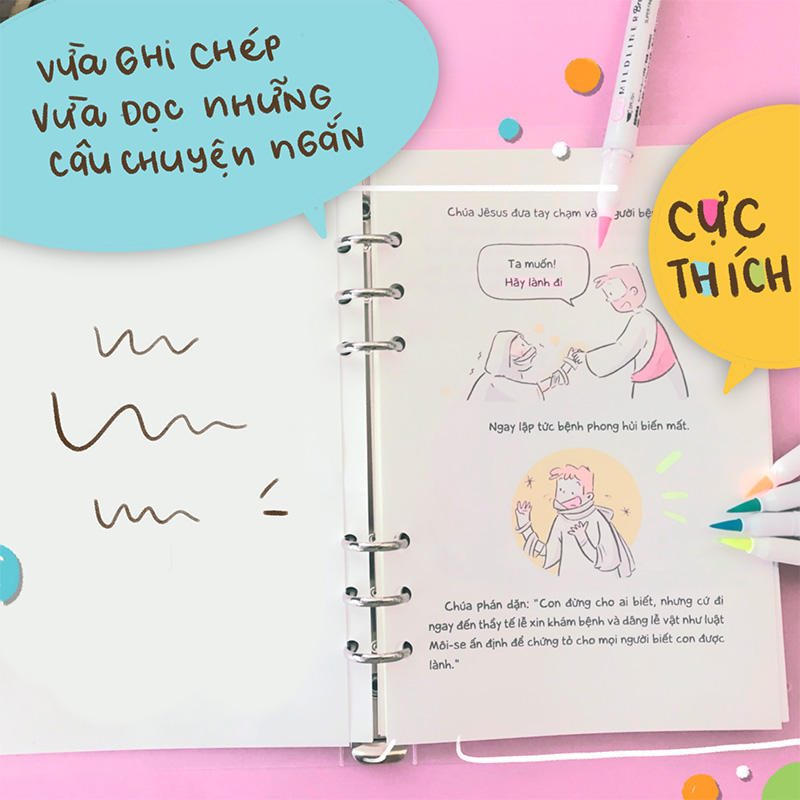 VỪA GHI CHÉP
VỪA DỌC NHỮNG
CÂU CHUYỆN NGẮN
MILDLINER
CỰC
THÍCH
Chúa Jêsus đưa tay chạm
Ta muốn!
Hãy lành đi
Ngay lập tức bệnh phong hủi biến mất.
Chúa phán dặn: "Con đừng cho ai biết, nhưng cứ đi
ngay đến thầy tế lễ xin khám bệnh và dâng lễ vật như luật
Môi-se ấn định để chứng tỏ cho mọi người biết con được
lành."